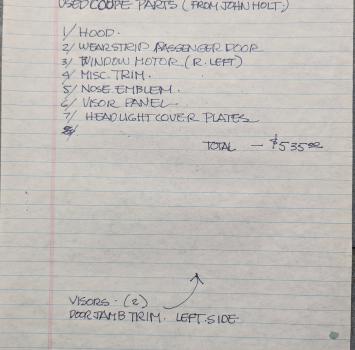 USED COUPE PARTS (FROM JOHN HOLT:)
1/ HOOD.
2/ WEARSTRIP PASSENGER DOOR
3/ WINDOW MOTOR (R. LEFT)
4/ MISC. TRIM.
5/ NOSE EMBLEM.
6/ VISOR PANEL
7/ HEADLIGHT COVER PLATES
8/
TOTAL — $535.00
VISORS. (2)
DOOR JAMB TRIM. LEFT.SIDE.